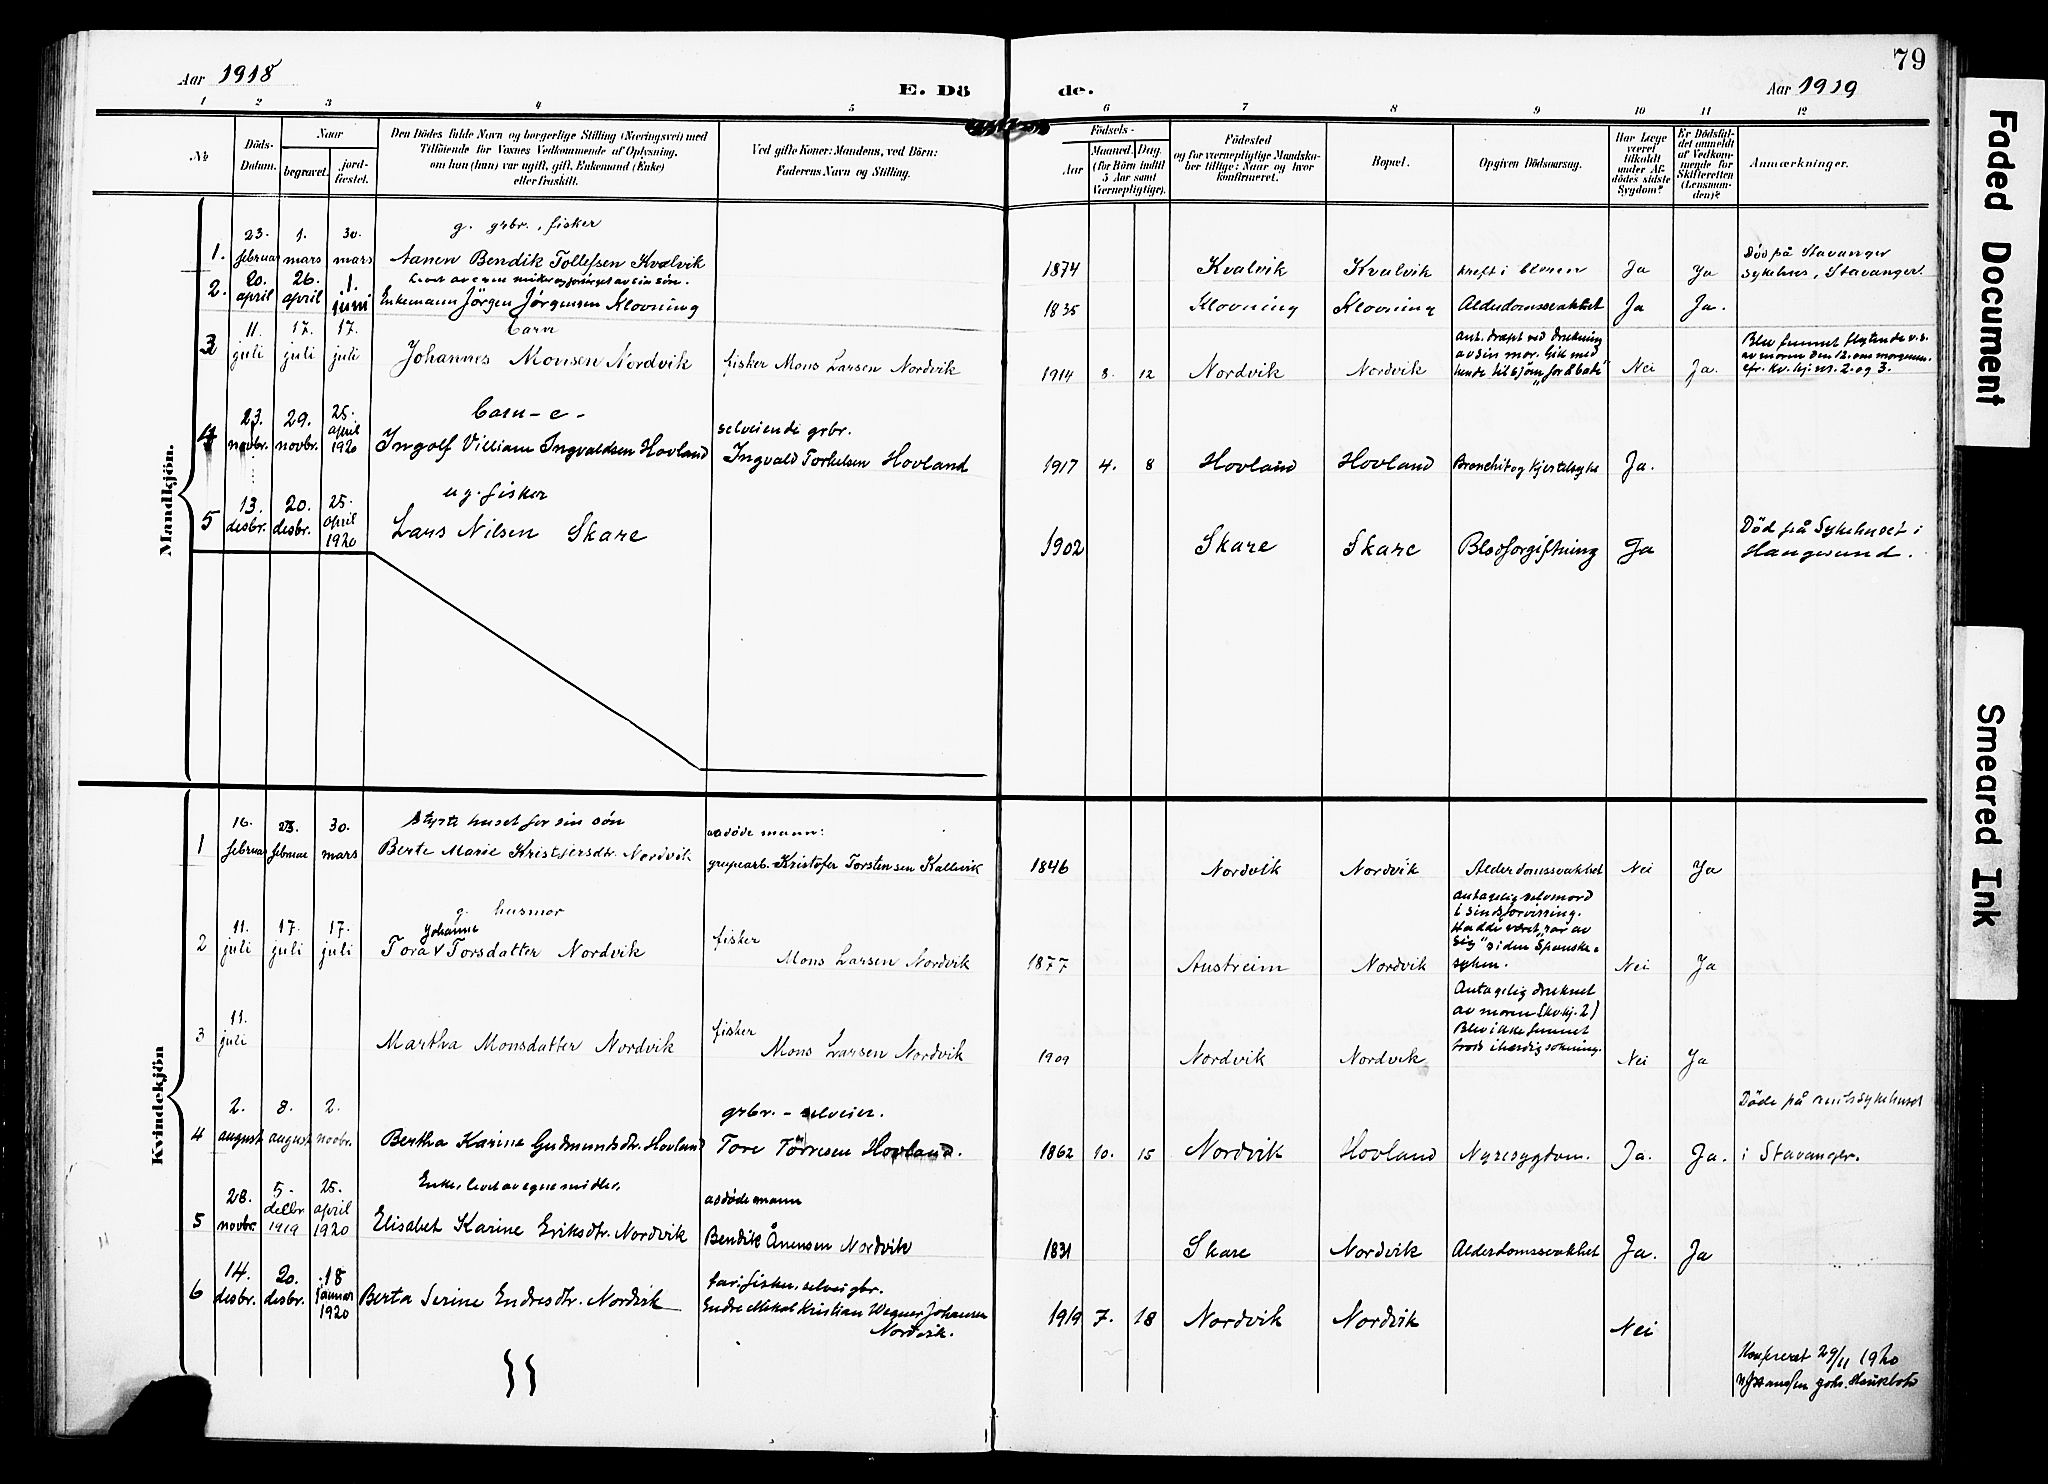 79
Aar 1918
E. Dö
de.
Aar 1919
1 2 3 4 5 6 7 8 9 10 11 12
No
Döds-
Datum.
Naar
begravet.
jord-
fæstet.
Den Dödes fulde Navn og borgerlige Stilling (Næringsvei) med
Tilföiende for Voxnes Vedkommende af Oplysning,
om han (hun) var ugift, gift, Enkemand (Enke)
eller fraskilt.
Ved gifte Koner: Mandens, ved Börn:
Faderens Navn og Stilling.
Födsels-
Aar
Maaned. Dag.
(for Börn indtil
5 Aar samt
Værnepligtige).
Födested
og for værnepligtige Mandska-
ber tillige: Naar og hvor
konfirmeret.
Bopæl.
Opgiven Dödsaarsag.
Har Læge
været
tilkaldt
under Af-
dödes sidste
Sygdom?
Er Dödsfal-
det anmeldt
af Vedkom-
mende for
Skifteretten
(Lensman-
den)?
Anmærkninger.
Mandkjön.
g. grbr., fisker
1. 23. februar 1. mars 30. mars Aanen Bendik Tollefsen Kvalvik 1874 Kvalvik Kvalvik kreft i Ja Ja
Död på Stavanger
sykehus, Stavanger.
Levet av egne midler og forsörget av sin sön.
2. 20. april 26. april 1. juni Enkemann Jörgen Jörgensen Klovning 1835 Klovning Klovning Alderdomssvakhet Ja Ja.
barn
3 11. juli 17. juli 17. juli Johannes Monsen Nordvik fisker Mons Larsen Nordvik 1914 8. 12 Nordvik Nordvik
ant. dræpt ved drukning
av sin mor. Gik med
hende til sjöen „for å bade"
Nei Ja.
Blev funnet flytende v.s.
av moren den 12. om morgenen.
cfr. Kv. kj. nr. 2. og 3.
barn - e -
4 23. novbr. 29. novbr. 25. april 1920 Ingolf Villiam Ingvaldsen Hovland
selveiende grbr.
Ingvald Torkelsen Hovland 1917 4. 8 Hovland Hovland Bronchit og kjertelsyke Ja.
ug. fisker
5 13. desbr. 20. desbr. 25. april 1920 Lars Nilsen Skare 1902 Skare Skare Blodforgiftning Ja
Död på Sykehuset i
Haugesund.
Kvindekjön
styrte huset for sin sön
1 16. februar 23. februar 30. mars Berte Marie Kristjersdtr. Nordvik
avdöde mann:
grupearb. Kristofer Torstensen Kallevik 1846 Nordvik Nordvik Alderdomssvakhet Nei Ja
g. husmor
Johanne
2 11. juli 17. juli 17. juli Tora v Torsdatter Nordvik
fisker
Mons Larsen Nordvik 1877 Austreim Nordvik
antagelig selvmord
i sindsforvirring.
Hadde været „rar av
sig" siden Spanske-
syken.
Nei Ja
3 11. juli Martha Monsdatter Nordvik
fisker
Mons Larsen Nordvik 1909 Nordvik Nordvik
Antagelig druknet
av moren (kv.kj. 2)
Blev ikke funnet
trods ihærdig sökning.
Nei Ja
4 2. august 8. august 2. novbr. Bertha Karine Gudmundsdtr. Hovland
grbr. - selveier.
Tore Törresen Hovland. 1862 10. 15 Nordvik Hovland Nyresygdom. Ja. Ja.
Döde på amtssykehuset
i Stavanger.
Enke, levet av egne midler.
5 28. novbr. 5. desbr 1919 25. april 1920 Elisabet Karine Eriksdtr. Nordvik
avdöde mann
Bendik Ånensen Nordvik 1831 Skare Nordvik Alderdomssvakhet Ja. Ja
6 14. desbr. 20. desbr. 18 januar 1920 Berta Serine Endresdtr. Nordvik
far: fisker, selvei gbr.
Endre Mikal Kristian Wegner Johansen
Nordvik.
1919 7. 18 Nordvik Nordvik Nei
Konfereret 29/11 1920
Faded Document
Smeared Ink